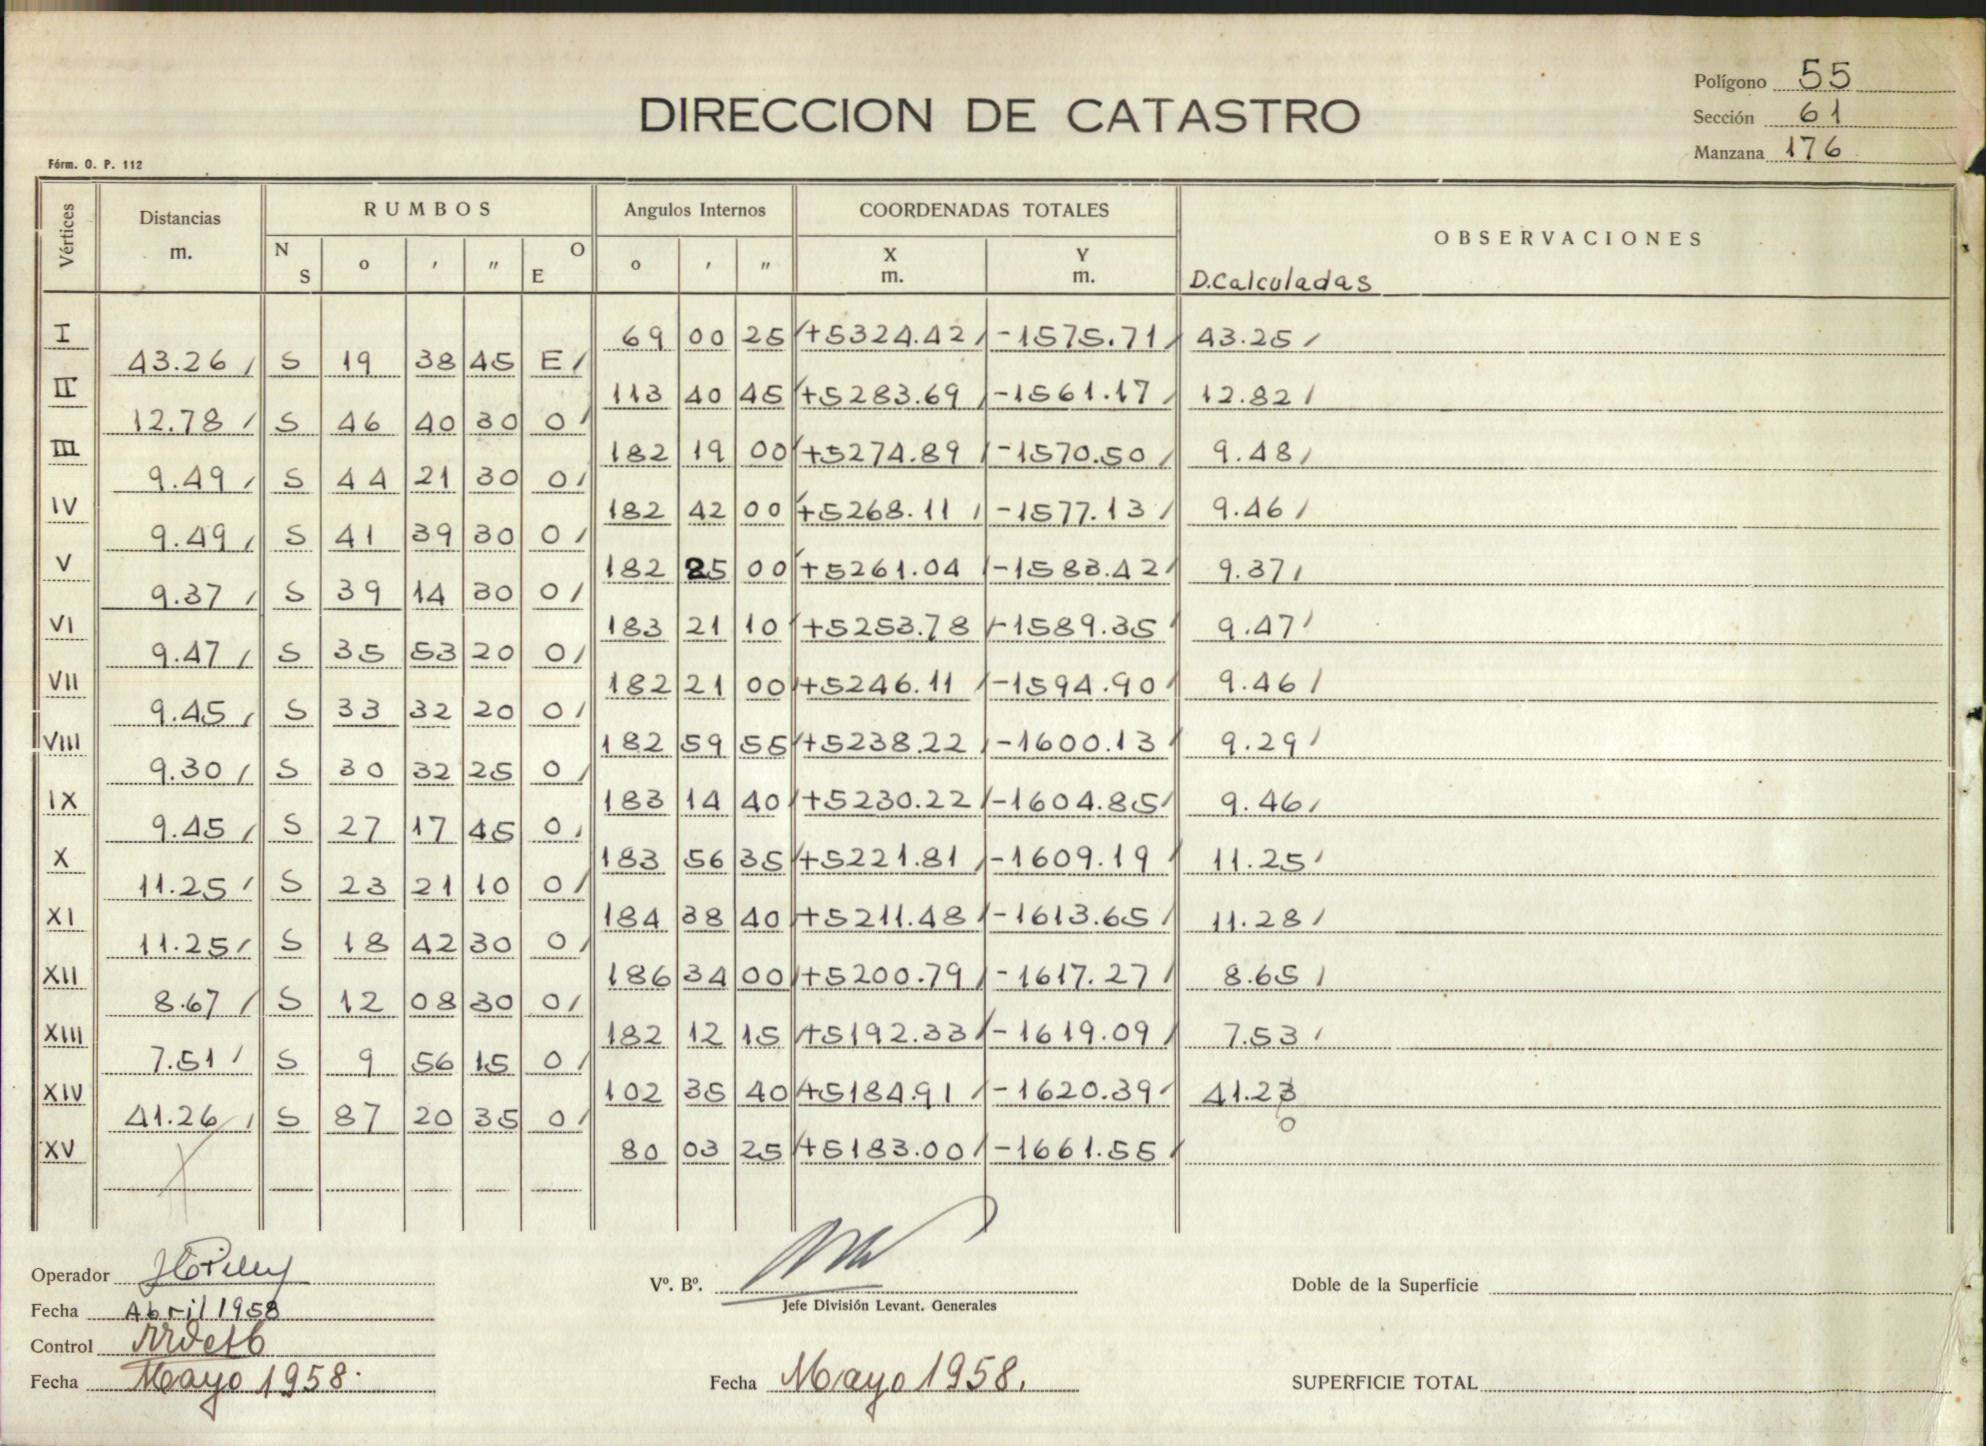 Polígono 55
DIRECCION DE CATASTRO
Sección 61
Manzana 176
Fórm. O. P. 112
Vértices Distancias m. RUMBOS Angulos Internos COORDENADAS TOTALES OBSERVACIONES
N S o ' " O E o ' " X m. Y m. D.Calculadas
I 69 00 25 +5324.42 -1575.71 43.25
43.26 S 19 38 45 E
II 113 40 45 +5283.69 -1561.17 12.82
12.78 S 46 40 30 O
III 182 19 00 +5274.89 -1570.50 9.48
9.49 S 44 21 30 O
IV 182 42 00 +5268.11 -1577.13 9.46
9.49 S 41 39 30 O
V 182 25 00 +5261.04 -1583.42 9.37
9.37 S 39 14 30 O
VI 183 21 10 +5253.78 -1589.35 9.47
9.47 S 35 53 20 O
VII 182 21 00 +5246.11 -1594.90 9.46
9.45 S 33 32 20 O
VIII 182 59 55 +5238.22 -1600.13 9.29
9.30 S 30 32 25 O
IX 183 14 40 +5230.22 -1604.85 9.46
9.45 S 27 17 45 O
X 183 56 35 +5221.81 -1609.19 11.25
11.25 S 23 21 10 O
XI 184 38 40 +5211.48 -1613.65 11.28
11.25 S 18 42 30 O
XII 186 34 00 +5200.79 -1617.27 8.65
8.67 S 12 08 30 O
XIII 182 12 15 +5192.33 -1619.09 7.53
7.51 S 9 56 15 O
XIV 102 35 40 +5184.91 -1620.39 41.23
41.26 S 87 20 35 O 0
XV 80 03 25 +5183.00 -1661.55
Operador
Vº. Bº.
Doble de la Superficie
Jefe División Levant. Generales
Fecha Abril 1958
Control
Fecha Mayo 1958.
Fecha Mayo 1958.
SUPERFICIE TOTAL